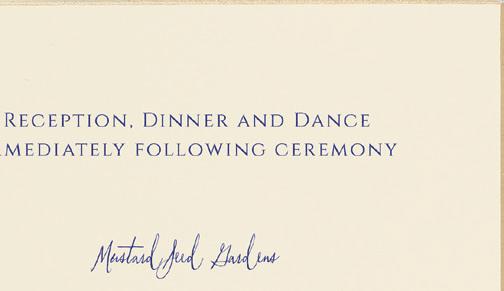 Reception, Dinner and Dance
mmediately following ceremony
Mustard Seed Gardens